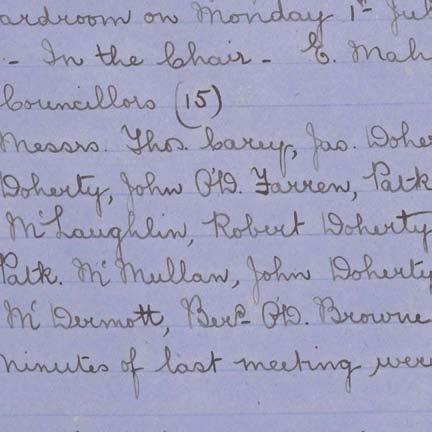 ardroom on Monday 1st Jul
- In the Chair - E. Mah
Councillors (15)
Messrs. Thos. Carey, Jas. Dohe
Doherty, John O'D. Farren, Patk
McLaughlin, Robert Doherty
Patk. McMullan, John Doherty
McDermott, Berd O'D. Browne
Minutes of last meeting were